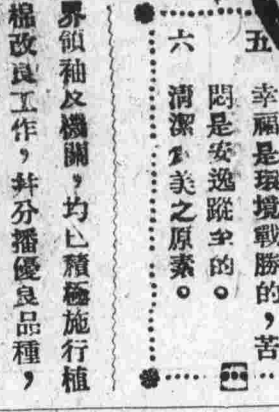 五
幸福是環境戰勝的，苦
悶是安逸蹤至的。
六
清潔為美之原素。
界領袖及機關，均已積極施行植
棉改良工作，幷分播優良品種，